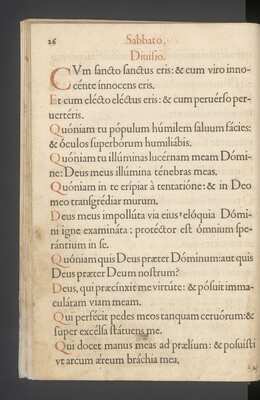 26
Sabbato.
Diuisio.
CVm sancto sanctus eris: & cum viro inno-
cénte ínnocens eris.
Et cum elécto eléctus eris: & cum peruérso per-
uertéris.
Quóniam tu pópulum húmilem saluum fácies:
& óculos superborum humiliábis.
Quóniam tu illúminas lucérnam meam Dómi-
ne: Deus meus illúmina ténebras meas.
Quóniam in te erípiar à tentatióne: & in Deo
meo transgrédiar murum.
Deus meus impollúta via eius, elóquia Dómi-
ni igne examináta: protéctor est ómnium spe-
rántium in se.
Quóniam quis Deus præter Dóminum: aut quis
Deus præter Deum nostrum?
Deus, qui præcínxit me virtúte: & pósuit imma-
culátam viam meam.
Qui perfécit pedes meos tanquam ceruórum: &
super excélsa státuens me.
Qui docet manus meas ad prælium: & posuísti
vt arcum æreum bráchia mea.